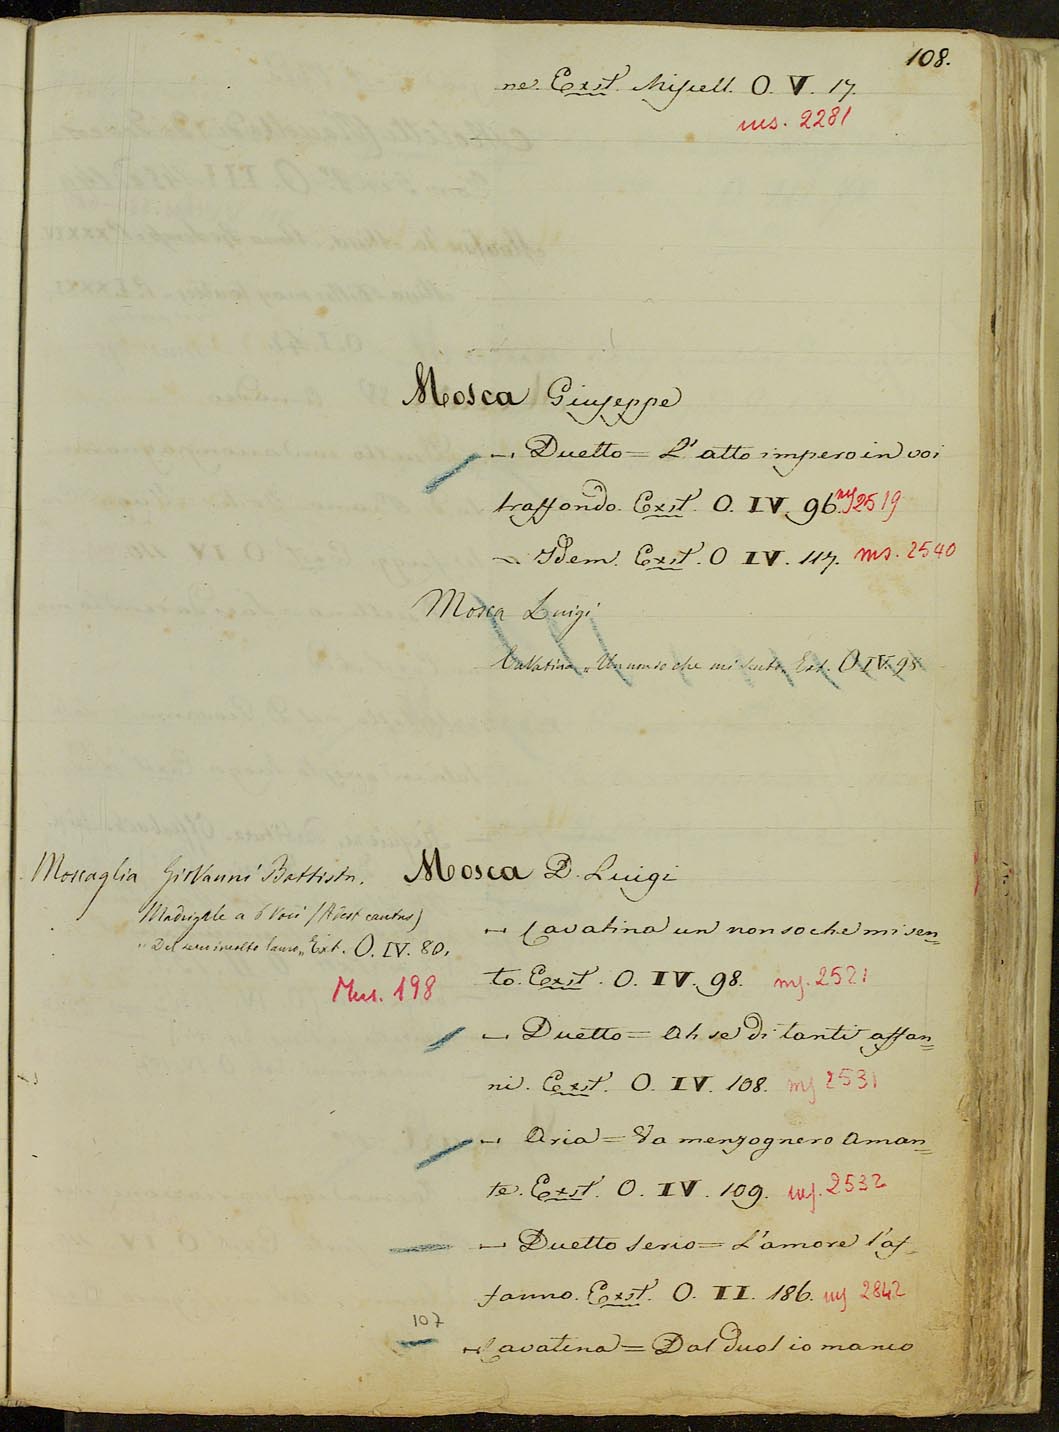 108.
ne. Exst. Miscell. O. V. 17.
ms. 2281
Mosca Giuseppe
— Duetto = L'atto impero in voi
trasfondo. Exst. O. IV. 96. ms 2519
— Idem. Exst. O IV. 117. ms. 2540
Mosca Luigi
Cavatina „ Un non so che mi sento. Ext. O IV. 98
Moscaglia Giovanni Battista.
Madrigale a 6 voci (Adest cantus)
" Del secco incolto lauro „ Ext. O. IV. 80.
Mus. 198
Mosca D. Luigi
— Cavatina un non so che mi sen=
to. Exst. O. IV. 98. ms. 2521
— Duetto = Ah se di tanti affan=
ni. Exst. O. IV. 108. ms 2531
— Aria = Va menzognero aman=
te. Exst. O. IV. 109. ms. 2532
— Duetto serio = L'amore l'af=
fanno. Exst. O. II. 186. ms 2842
107
— Cavatina = Dal duol io manco